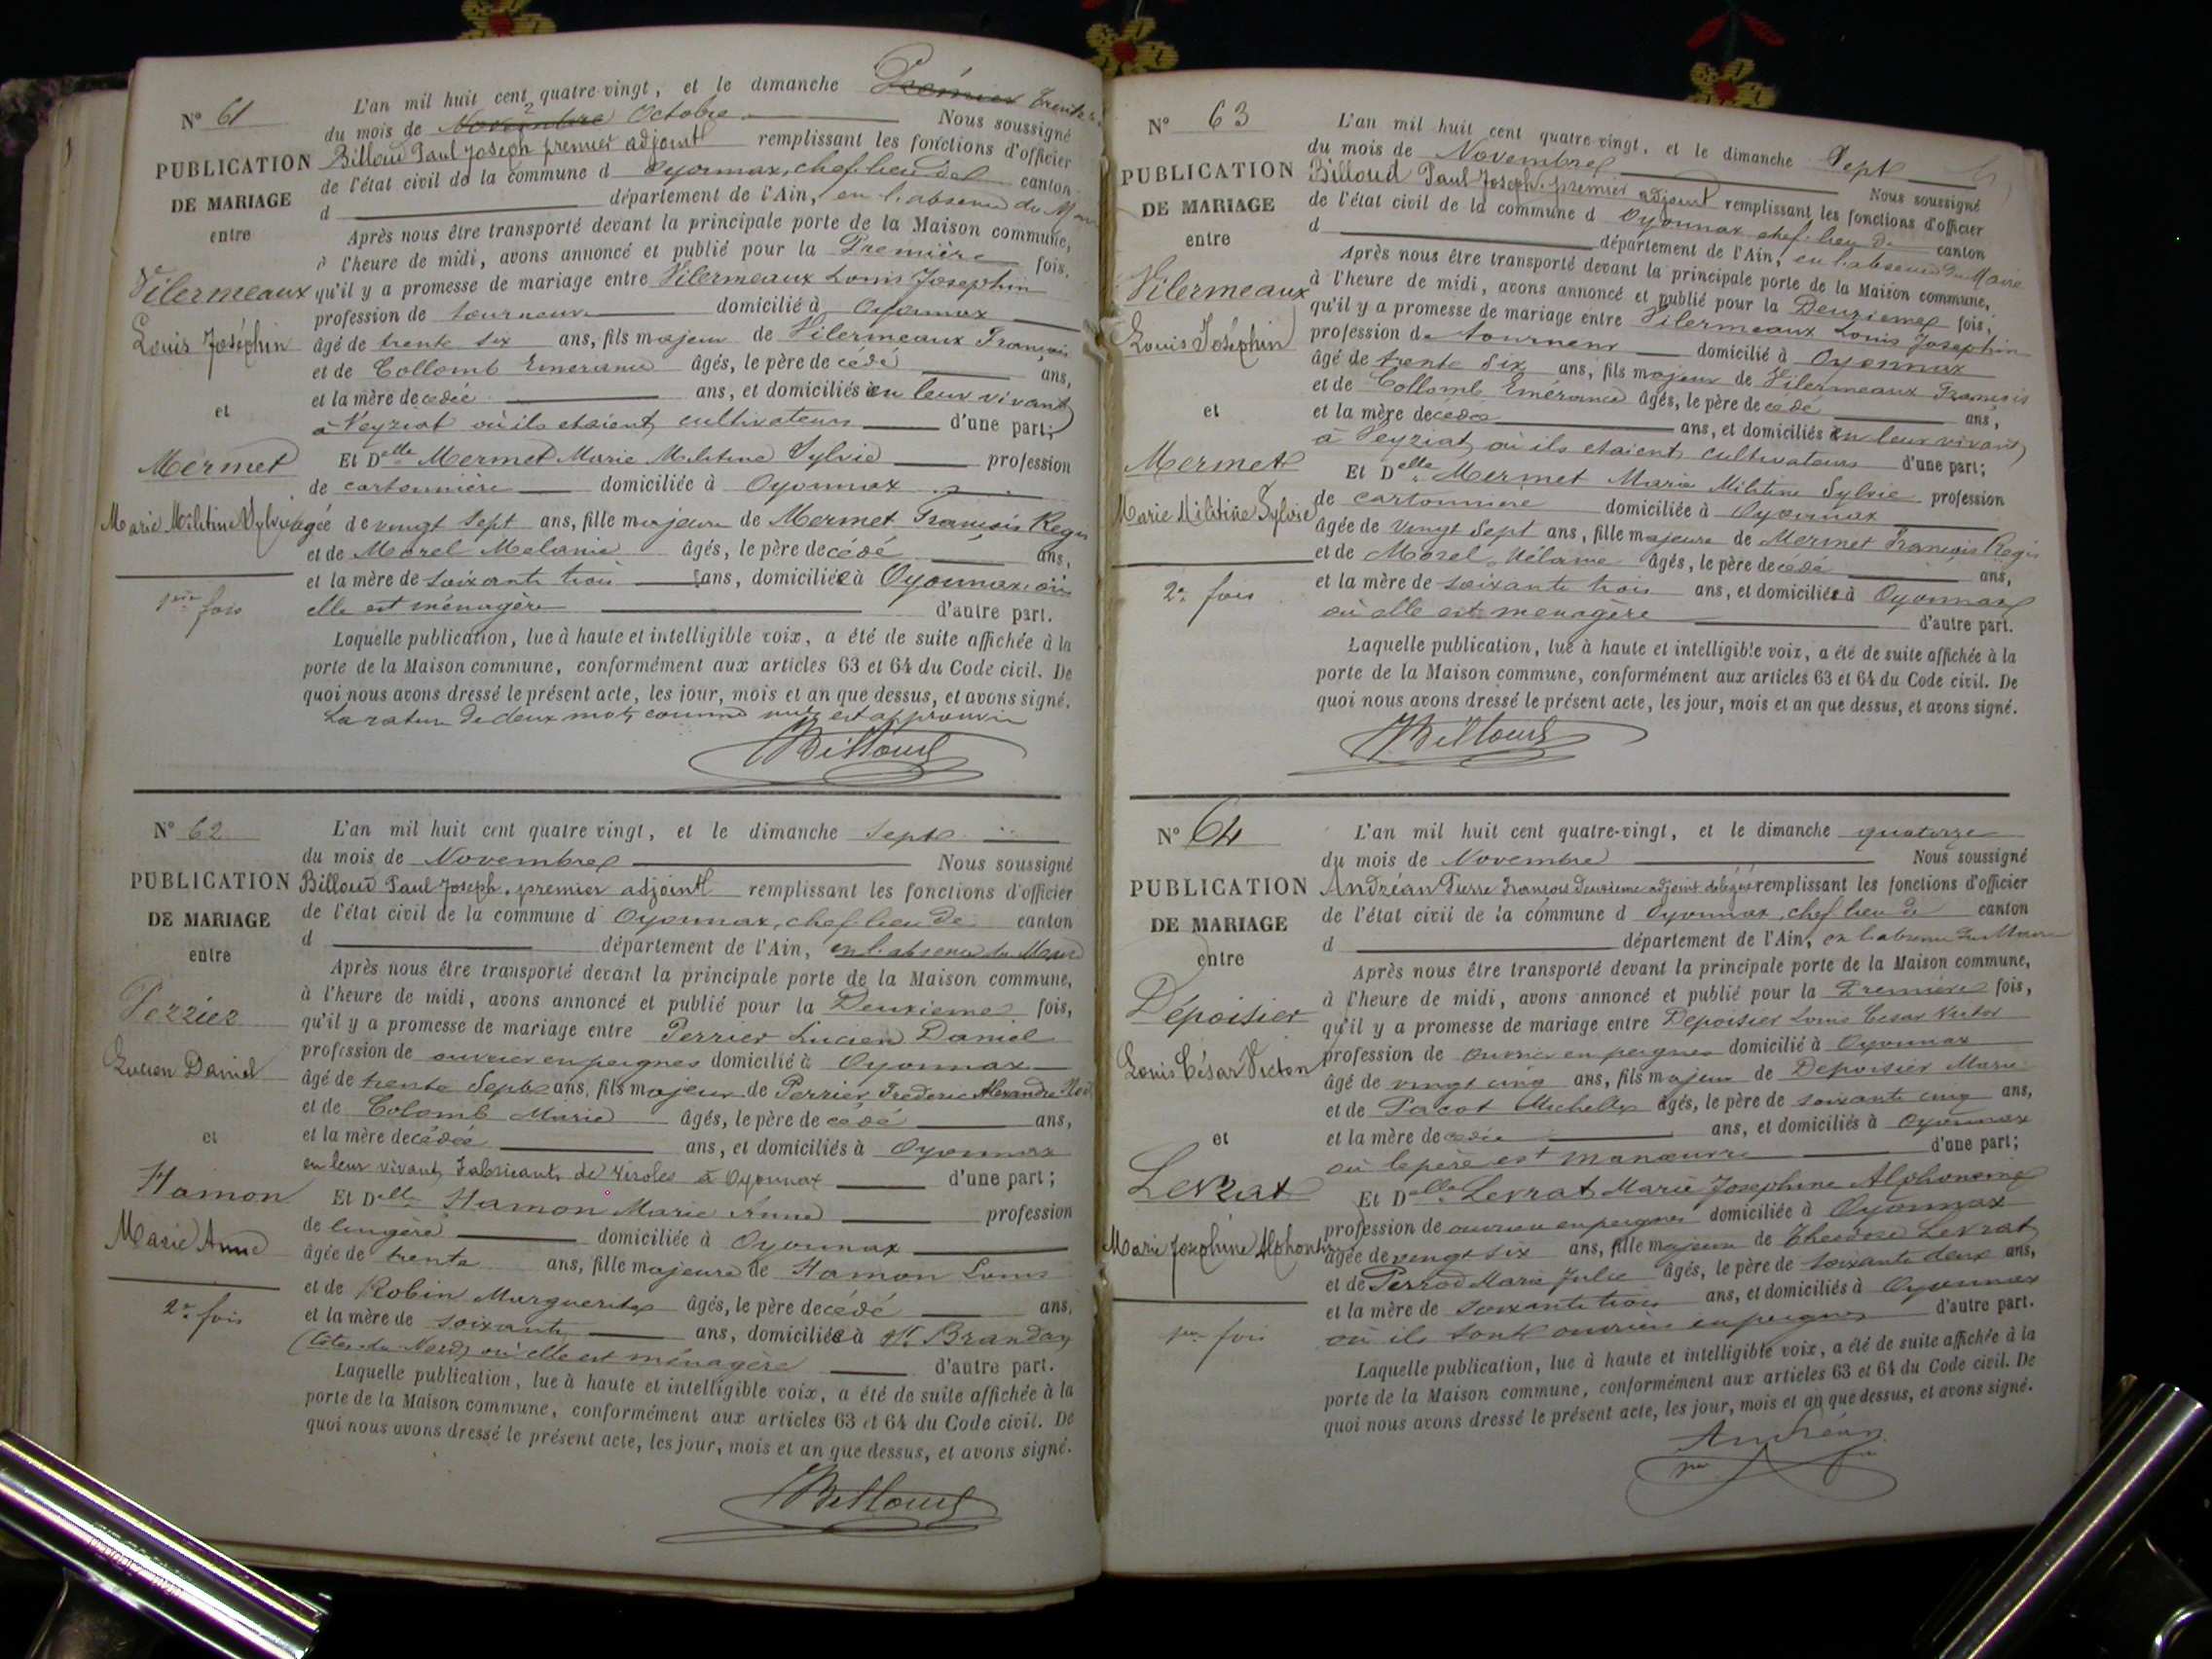 N° 61
PUBLICATION
DE MARIAGE
entre
Vilermeaux
Louis Joséphin
et
Mermet
Marie Militine Sylvie
1ère fois
L'an mil huit cent quatre-vingt, et le dimanche Prémier trente
du mois de Novembre Octobre Nous soussigné
Billoud Paul Joseph premier adjoint remplissant les fonctions d'officier
de l'état civil de la commune d Oyonnax, chef lieu de canton
d département de l'Ain, en l'absence du
Après nous être transporté devant la principale porte de la Maison commune,
à l'heure de midi, avons annoncé et publié pour la Première fois,
qu'il y a promesse de mariage entre Vilermeaux Louis Josephin
profession de tourneur domicilié à Oyonnax
âgé de trente six ans, fils majeur de Vilermeaux François
et de Collomb Emerance âgés, le père de cédé ans,
et la mère decédée ans, et domiciliés en leur vivant
à Veyziat où ils etaient cultivateurs d'une part;
Et Delle Mermet Marie Militine Sylvie profession
de cartonnière domiciliée à Oyonnax
âgée de vingt sept ans, fille majeure de Mermet François Regis
et de Morel Melanie âgés, le père decédé ans,
et la mère de soixante trois ans, domiciliée à Oyonnax où
elle est ménagère d'autre part.
Laquelle publication, lue à haute et intelligible voix, a été de suite affichée à la
porte de la Maison commune, conformément aux articles 63 et 64 du Code civil. De
quoi nous avons dressé le présent acte, les jour, mois et an que dessus, et avons signé.
La rature de deux mots comme nuls est approuvée
Billoud
N° 62
PUBLICATION
DE MARIAGE
entre
Perrier
Lucien Daniel
et
Hamon
Marie Anne
2e fois
L'an mil huit cent quatre vingt, et le dimanche sept
du mois de Novembre Nous soussigné
Billoud Paul Joseph, premier adjoint remplissant les fonctions d'officier
de l'état civil de la commune d Oyonnax, chef lieu de canton
d département de l'Ain, en l'absence du Maire
Après nous être transporté devant la principale porte de la Maison commune,
à l'heure de midi, avons annoncé et publié pour la Deuxieme fois,
qu'il y a promesse de mariage entre Perrier Lucien Daniel
profession de ouvrier en peignes domicilié à Oyonnax
âgé de trente Sept ans, fils majeur de Perrier Frederic Alexandre
et de Colomb Marie âgés, le père de cédé ans,
et la mère decédée ans, et domiciliés à Oyonnax
en leur vivant, fabricants de viroles à Oyonnax d'une part;
Et Delle Hamon Marie Anne profession
de lingère domiciliée à Oyonnax
âgée de trente ans, fille majeure de Hamon Louis
et de Robin Marguerite âgés, le père decédé ans,
et la mère de soixante ans, domiciliée à St Brandan
(Côtes du Nord) où elle est ménagère d'autre part.
Laquelle publication, lue à haute et intelligible voix, a été de suite affichée à la
porte de la Maison commune, conformément aux articles 63 et 64 du Code civil. De
quoi nous avons dressé le présent acte, les jour, mois et an que dessus, et avons signé.
Billoud
N° 63
PUBLICATION
DE MARIAGE
entre
Vilermeaux
Louis Joséphin
et
Mermet
Marie Militine Sylvie
2e fois
L'an mil huit cent quatre-vingt, et le dimanche Sept
du mois de Novembre Nous soussigné
Billoud Paul Joseph, premier adjoint remplissant les fonctions d'officier
de l'état civil de la commune d Oyonnax chef lieu de canton
d département de l'Ain, en l'absence du Maire
Après nous être transporté devant la principale porte de la Maison commune,
à l'heure de midi, avons annoncé et publié pour la Deuxieme fois,
qu'il y a promesse de mariage entre Vilermeaux Louis Josephin
profession de tourneur domicilié à Oyonnax
âgé de trente six ans, fils majeur de Vilermeaux François
et de Collomb Emérance âgés, le père de cédé ans,
et la mère decédée ans, et domiciliés en leur vivant
à Veyziat où ils etaient cultivateurs d'une part;
Et Delle Mermet Marie Militine Sylvie profession
de cartonnière domiciliée à Oyonnax
âgée de vingt Sept ans, fille majeure de Mermet François Regis
et de Morel Mélanie âgés, le père decédé ans,
et la mère de soixante trois ans, et domiciliée à Oyonnax
où elle est menagère d'autre part.
Laquelle publication, lue à haute et intelligible voix, a été de suite affichée à la
porte de la Maison commune, conformément aux articles 63 et 64 du Code civil. De
quoi nous avons dressé le présent acte, les jour, mois et an que dessus, et avons signé.
Billoud
N° 64
PUBLICATION
DE MARIAGE
entre
Dépoisier
Louis César Victor
et
Levrat
Marie Joséphine Alphonsine
1ère fois
L'an mil huit cent quatre-vingt, et le dimanche quatorze
du mois de Novembre Nous soussigné
Andréan Pierre François Deuxieme adjoint délégué remplissant les fonctions d'officier
de l'état civil de la commune d Oyonnax, chef lieu de canton
d département de l'Ain, en l'absence du Maire
Après nous être transporté devant la principale porte de la Maison commune,
à l'heure de midi, avons annoncé et publié pour la Premiere fois,
qu'il y a promesse de mariage entre Depoisier Louis Cesar Victor
profession de ouvrier en peignes domicilié à Oyonnax
âgé de vingt cinq ans, fils majeur de Depoisier Marie
et de Pacot Michelle âgés, le père de soixante cinq ans,
et la mère decedée ans, et domiciliés à Oyonnax
où le père est manœuvre d'une part;
Et Delle Levrat Marie Josephine Alphonsine
profession de ouvriere en peignes domiciliée à Oyonnax
âgée de vingt six ans, fille majeure de Theodore Levrat
et de Perrod Marie Julie âgés, le père de soixante deux ans,
et la mère de soixante trois ans, et domiciliés à Oyonnax
où ils sont ouvriers en peignes d'autre part.
Laquelle publication, lue à haute et intelligible voix, a été de suite affichée à la
porte de la Maison commune, conformément aux articles 63 et 64 du Code civil. De
quoi nous avons dressé le présent acte, les jour, mois et an que dessus, et avons signé.
Andréan